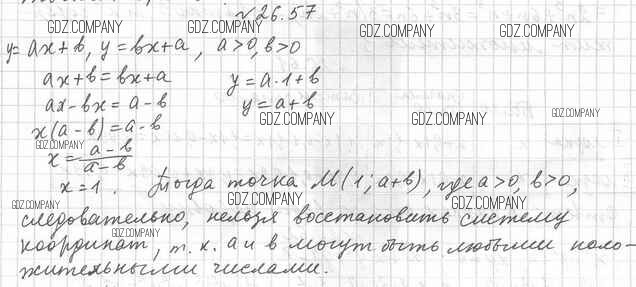 №26.57
GDZ.COMPANY GDZ.COMPANY GDZ.COMPANY GDZ.COMPANY
y=ax+b, y=bx+a, a>0, b>0
ax+b=bx+a y=a·1+b
ax-bx=a-b y=a+b
GDZ.COMPANY GDZ.COMPANY GDZ.COMPANY
x(a-b)=a-b
GDZ.COMPANY
x=\frac{a-b}{a-b}
x=1. Тогда точка M(1; a+b), где a>0, b>0,
GDZ.COMPANY GDZ.COMPANY GDZ.COMPANY
следовательно, нельзя восстановить систему
GDZ.COMPANY
координат, т. к. a и b могут быть любыми поло-
жительными числами.